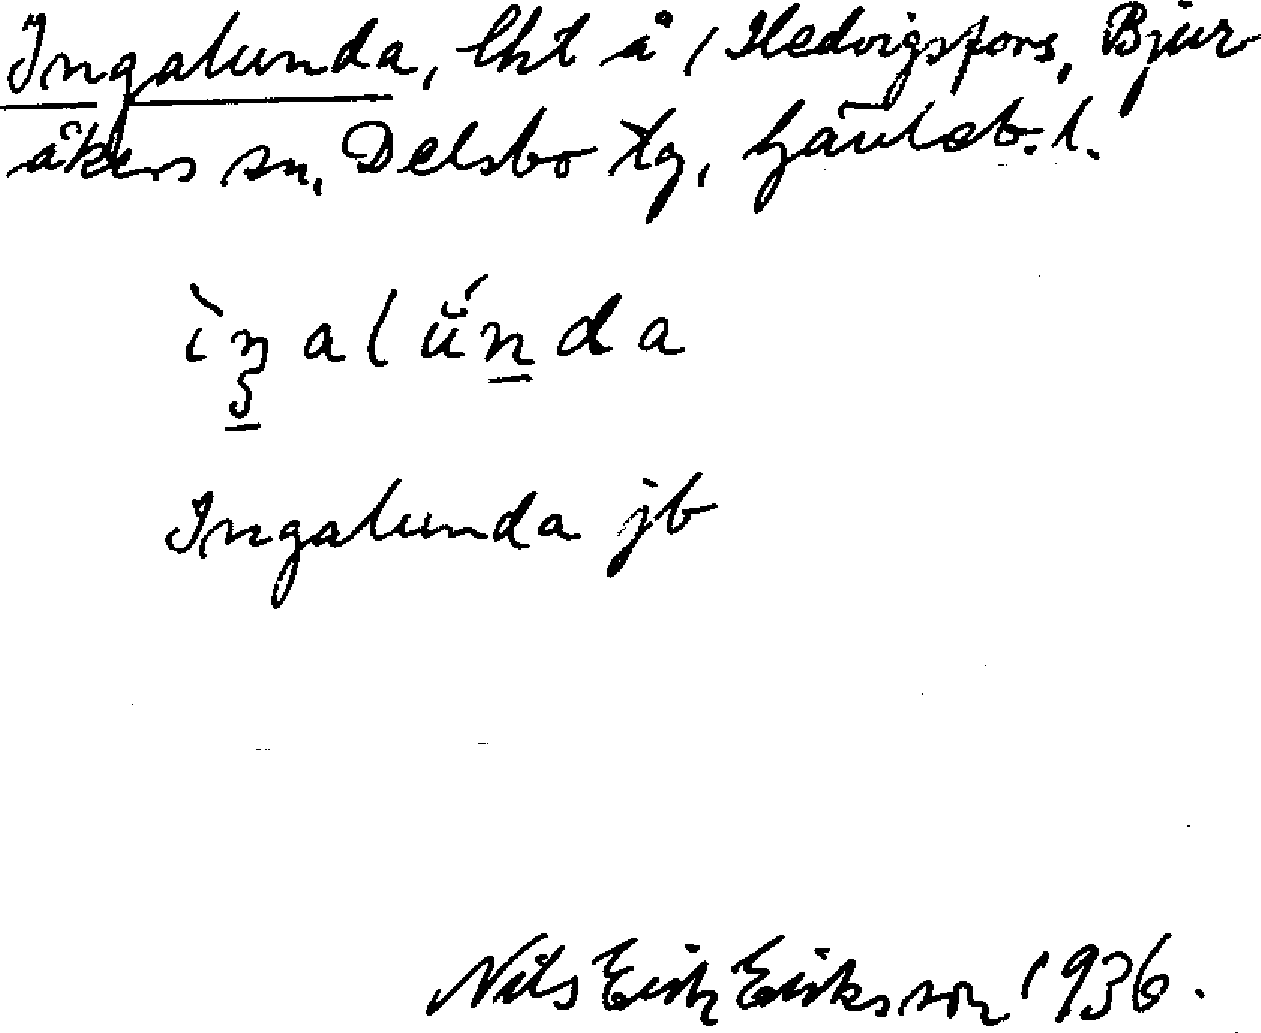 Ingalunda, lht å 1 Hedvigsfors, Bjur-
åkers sn, Delsbo tg, Gävleb. l.
ìŋalúnda
Ingalunda jb
Nils Erik Eriksson 1936.